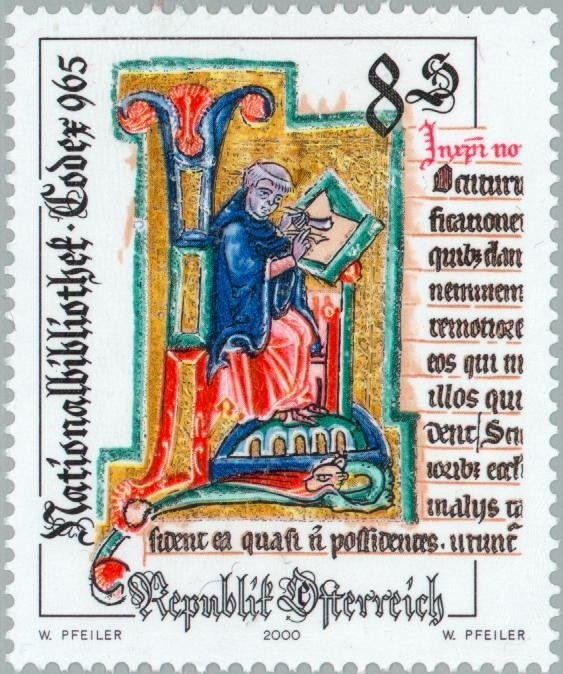 Nationalbibliothek · Codex 965
8 S
Inxpi no
ficatione
quibz dam
neminem
remotiore
eos qui in
illos qui
dent Scri
malys ta
sident ea quasi n possidentes. utunt
Republik Österreich
W. PFEILER 2000 W. PFEILER